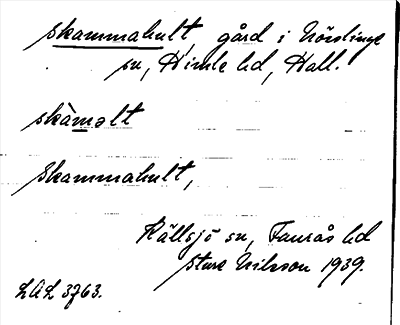 Skammahult, gård i Nösslinge
sn, Himle hd, Hall.
skàmalt
Skammahult,
Källsjö sn, Faurås hd
Sture Nilsson 1939.
LAL 3763.